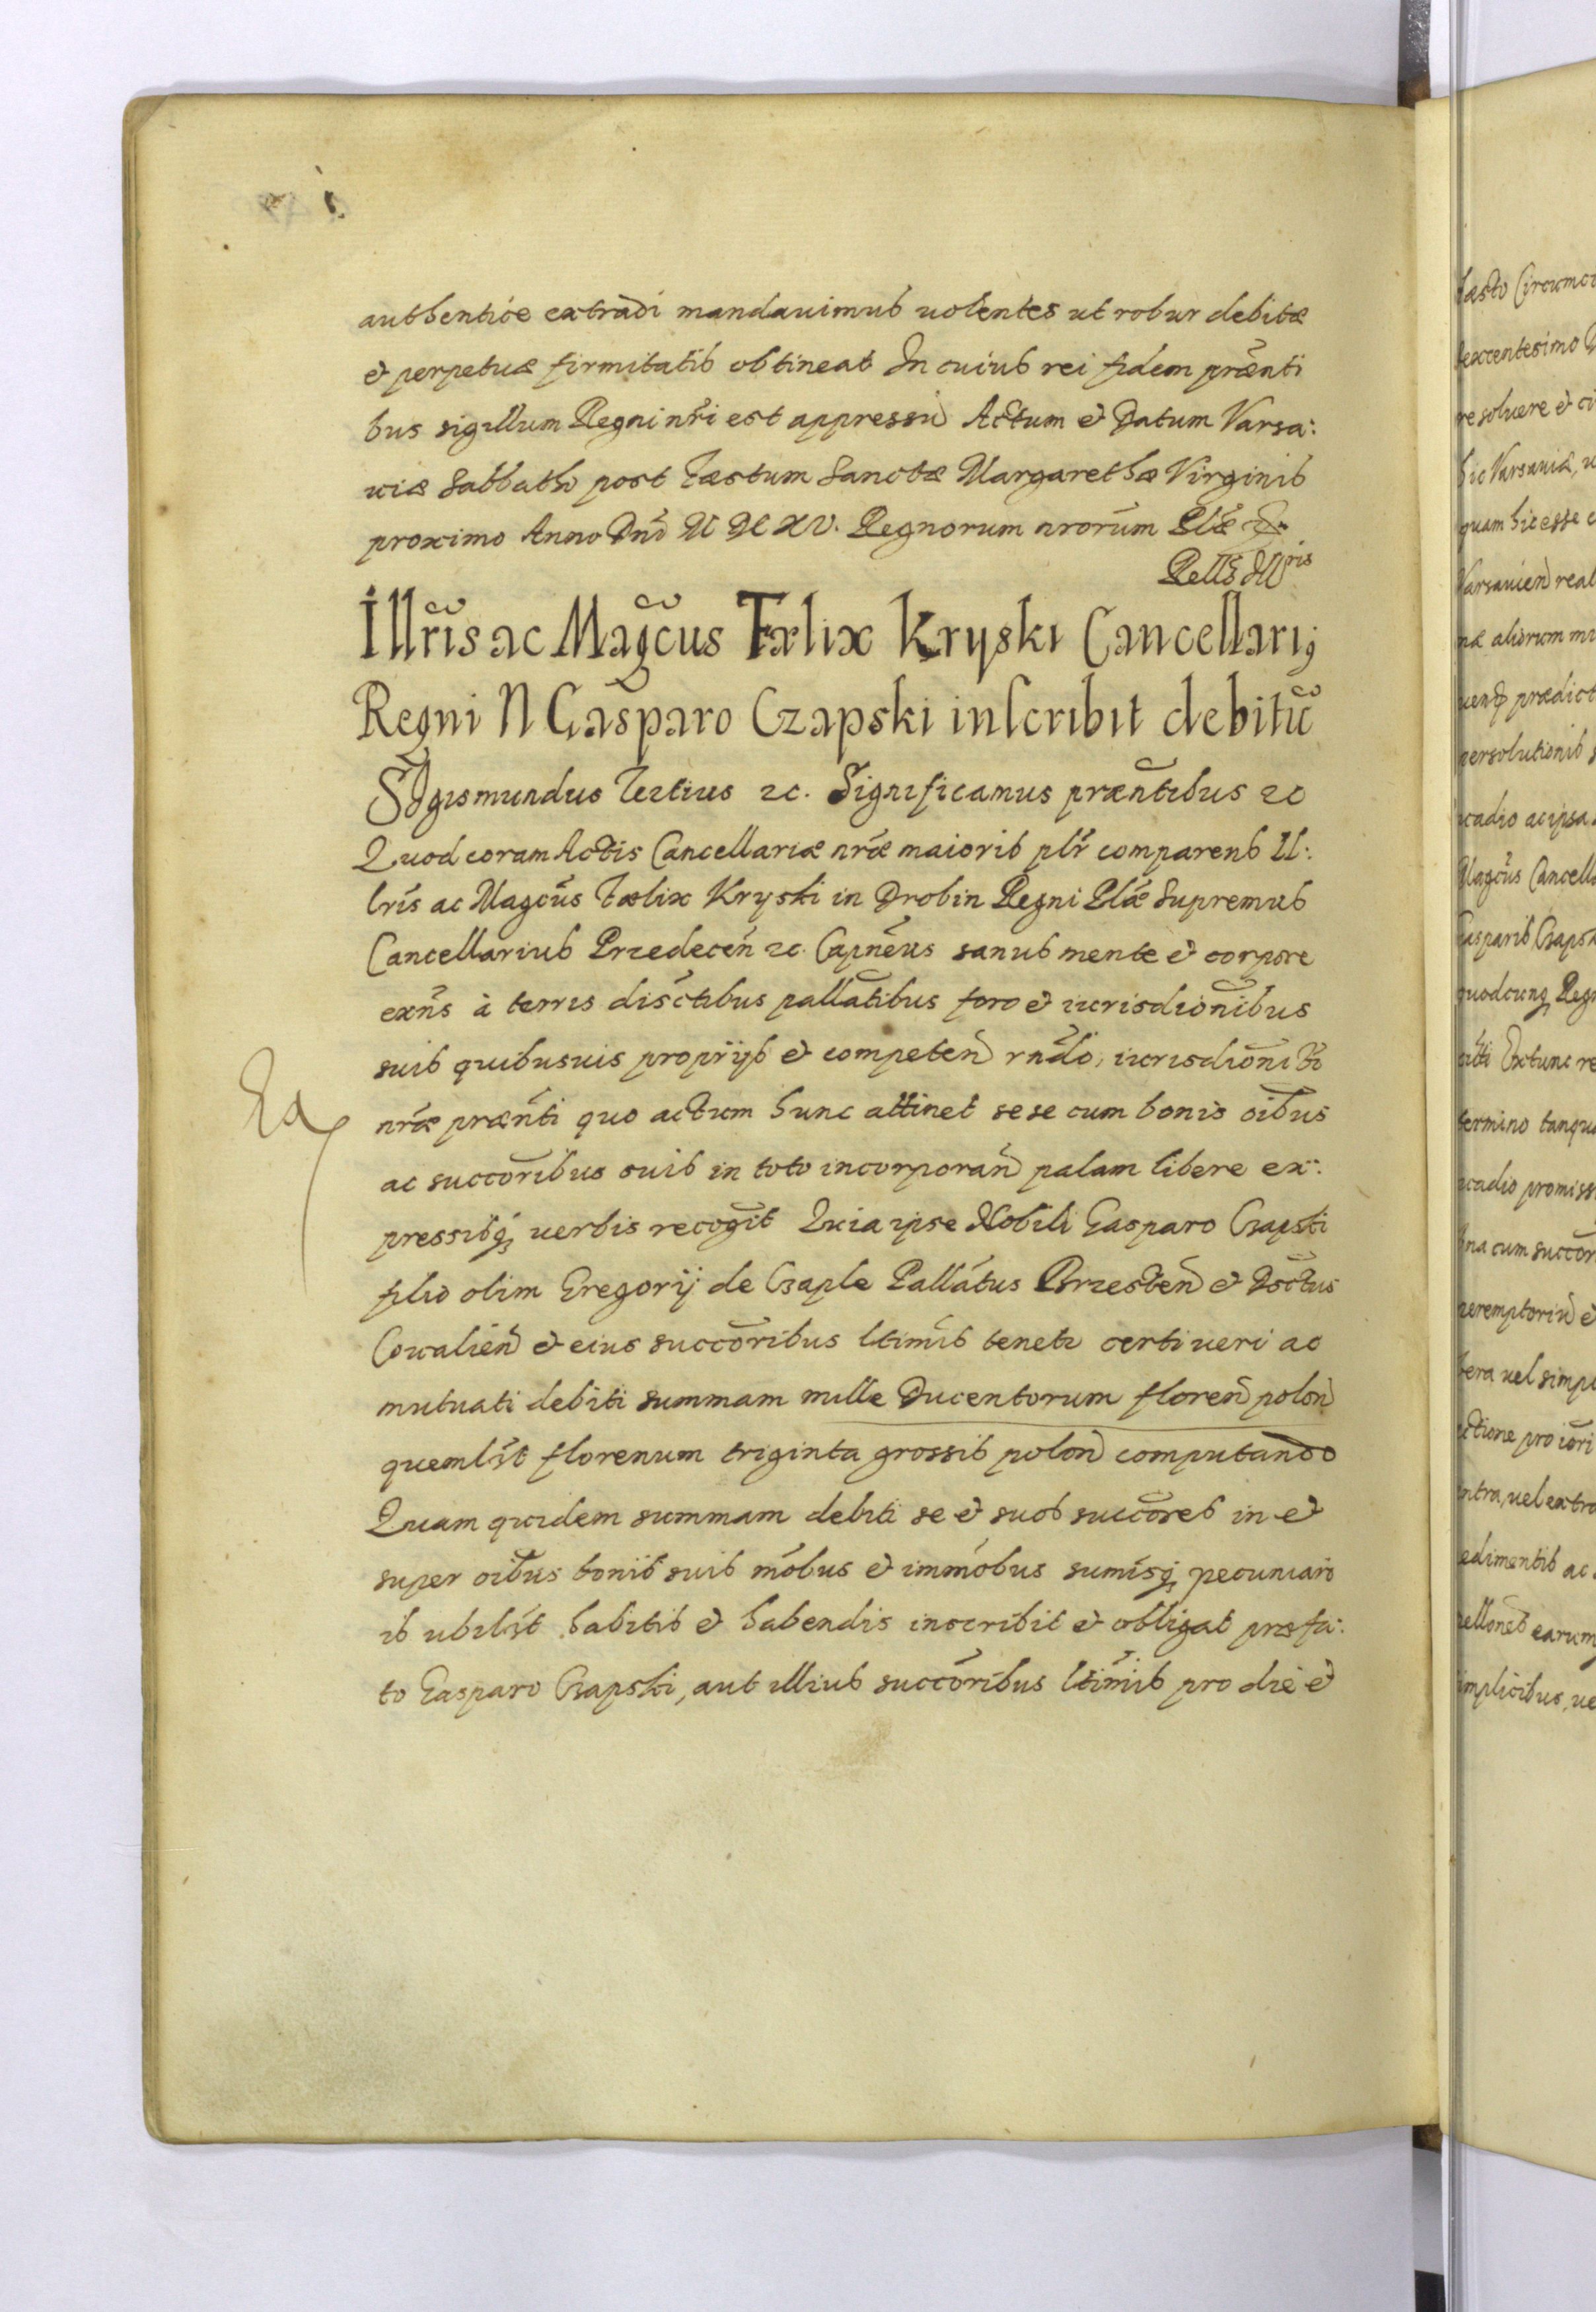 authentice extradi mandauimus uolentes ut robur debitæ
et perpetuæ firmitatis obtineat In cuius rei fidem prænti
bus sigillum Regni nri est appressū Actum et Datum Varsa:
uiæ Sabbatho post Fæstum Sanctæ Margarethæ Virginis
proximo Anno Dni M DC XV. Regnorum nrorum Plæ &
Illris ac Magcus Fælix Kryski Cancellari9
Regni N Gasparo Czapski inscribit debitū
Sigismundus Tertius etc. Significamus præntibus etc
Quod coram Actis Cancellariæ nræ maioris plr comparens Il:
lris ac Magcus Fælix Kryski in Drobin Regni Plæ Supremus
Cancellarius Przedecen etc. Capneus sanus mente et corpore
exns à terris disctibus pallatibus foro et iurisdionibus
suis quibusuis proprijs et competen rndo, iurisdioni
nræ prænti quo actum hunc attinet sese cum bonis oibus
ac succoribus suis in toto incorporan palam libere ex:
pressisq uerbis recogit Quia ipse Nobili Gasparo Czapski
filio olim Gregorij de Czaple Pallatus Brzesten et Dsctus
Cowalien et eius succoribus ltimis tenetr certi ueri ac
mutuati debiti summam mille Ducentorum floren polon
quemlst florenum triginta grossis polon computando
Quam quidem summam debiti se et suos succores in et
super oibus bonis suis mobus et immobus sumisq pecuniari
is ubilst habitis et habendis inscribit et obligat præfa:
to Gasparo Czapski, aut illius succoribus ltimis pro die et
Fæsto Circumci
sexcentesimo
resoluere et
hic Varsauiæ,
quam hic esse
Varsauien real
næ aliorum
prædict
persolutionis
uadio ac ipsa
Magcus Cancell
Gasparis Czapsk
quodcunq Regn
Extunc re
termino tanqua
uadio promiss
una cum succor
peremptoriū et
uel simpl
ctione pro
intra, uel extra
edimentis ac
earum
simplicibus, ue